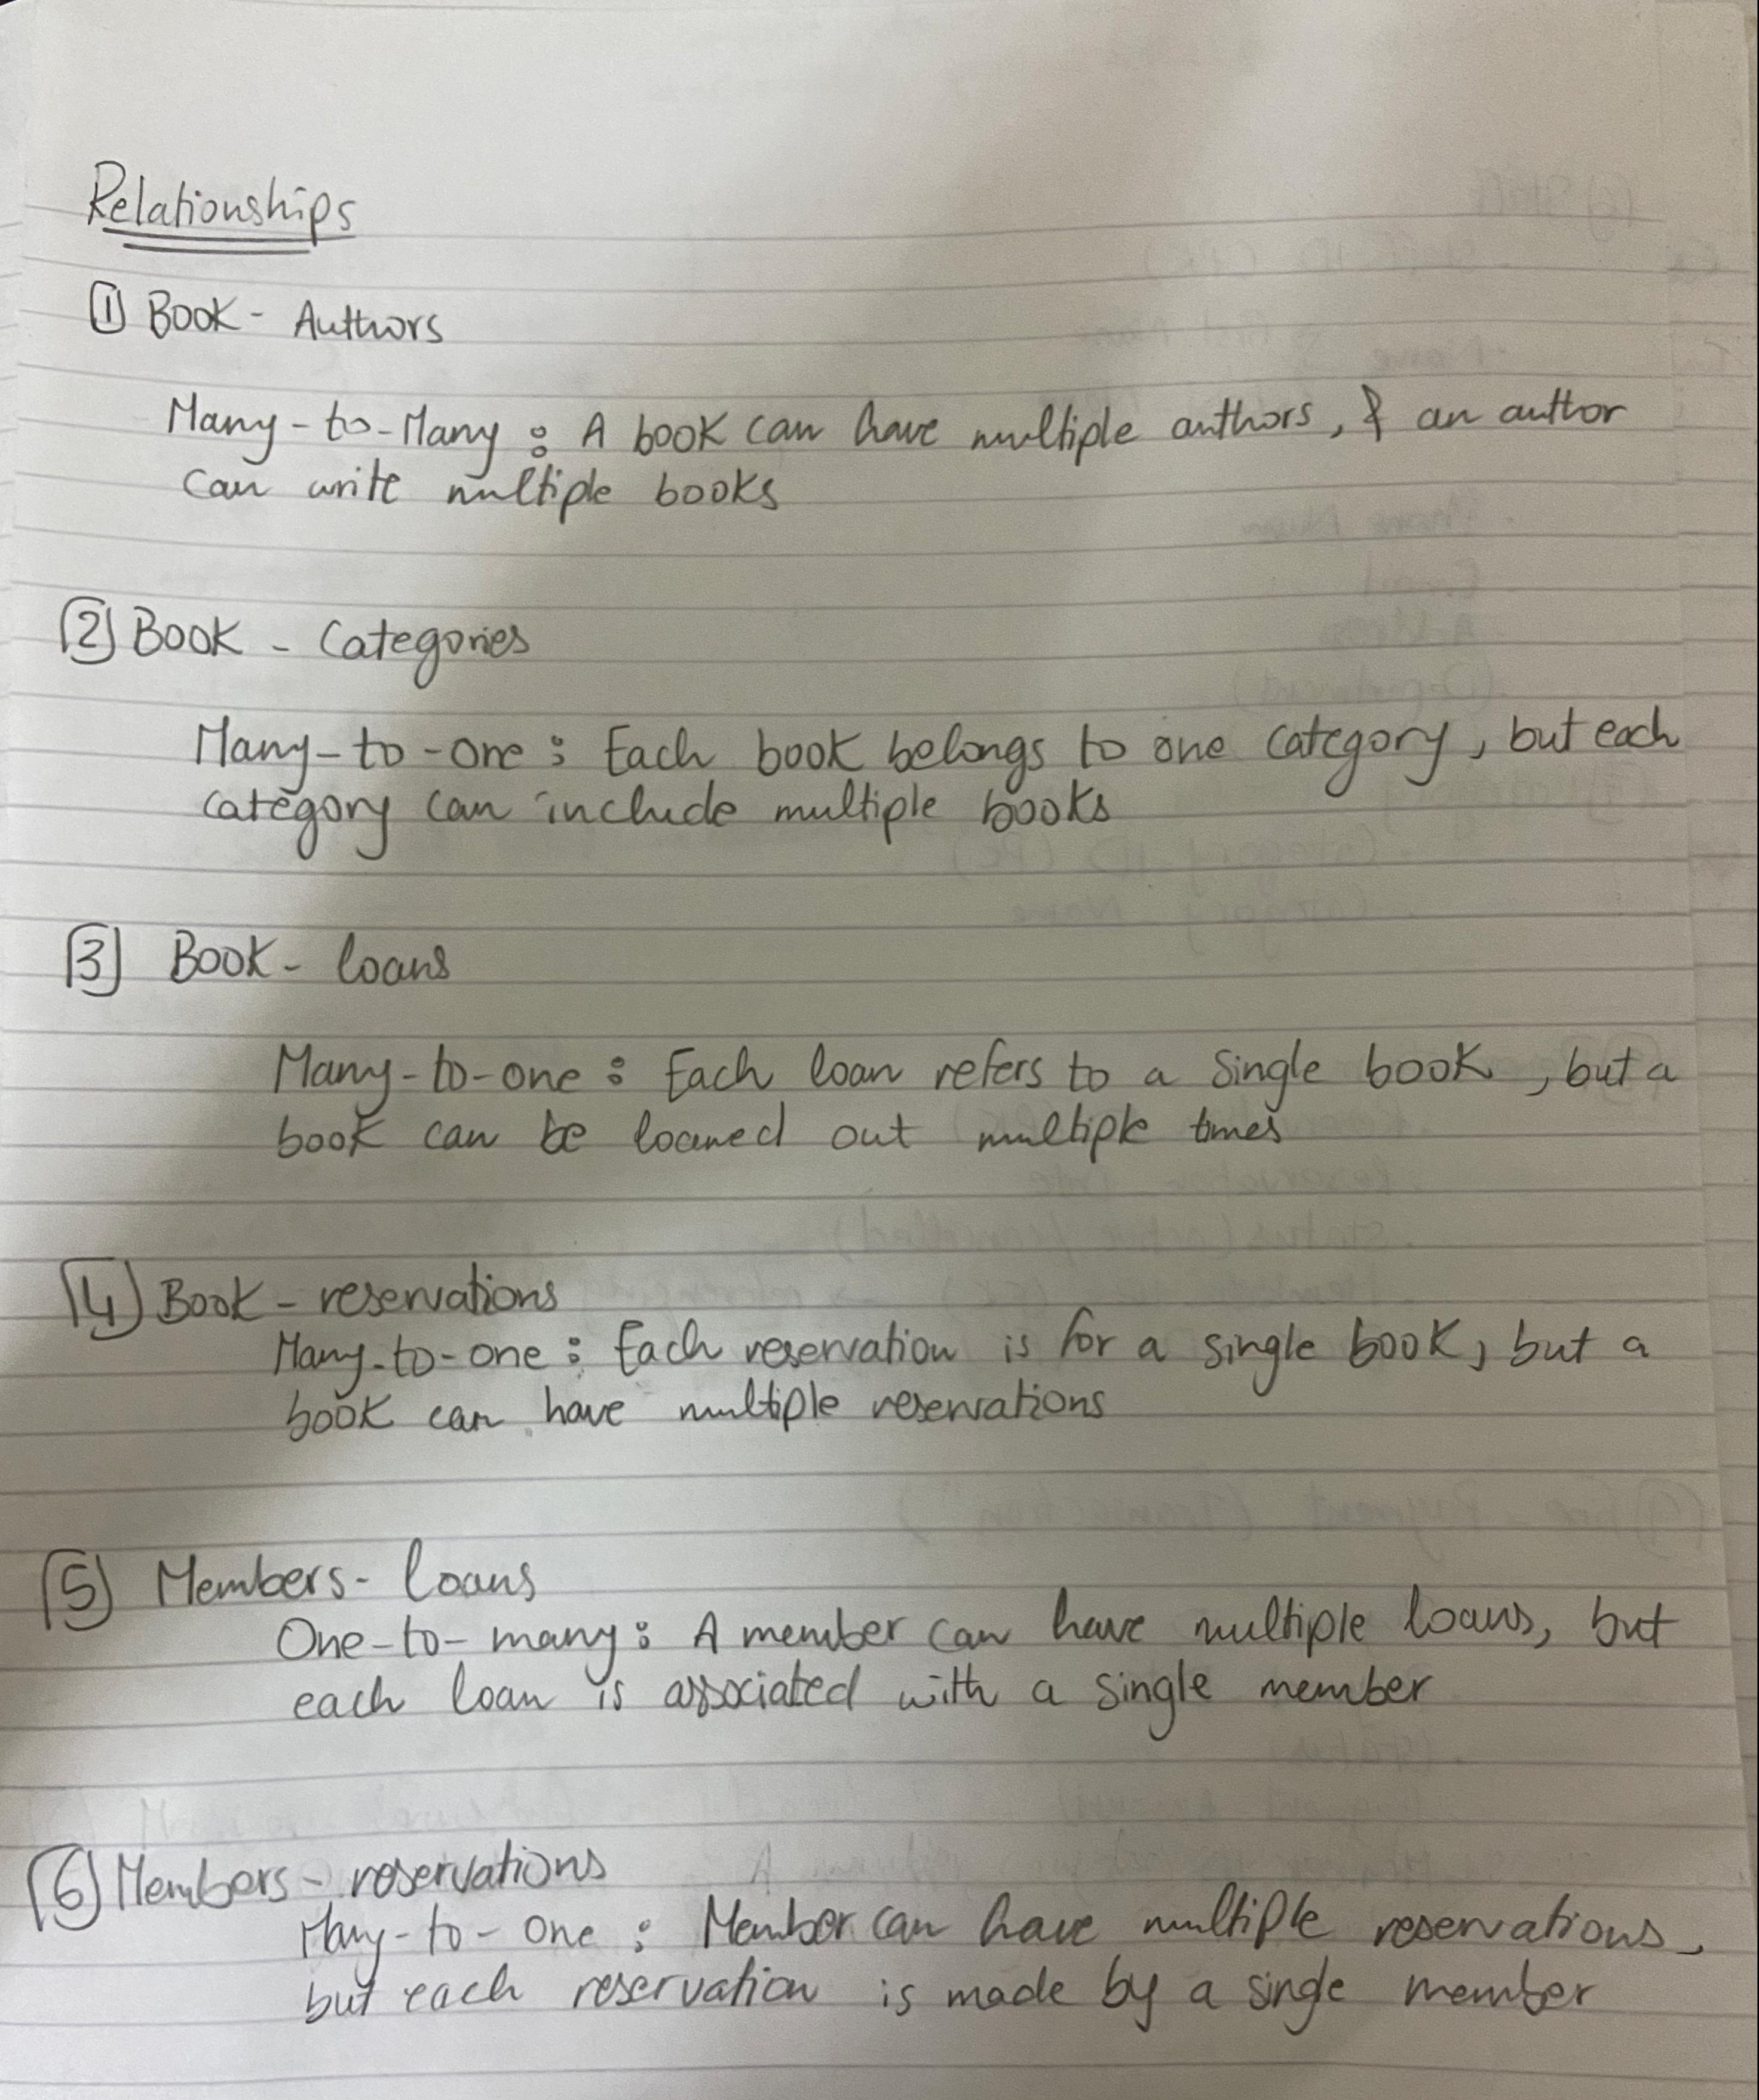 Relationships
① Book - Authors
Many-to-Many : A book can have multiple authors, & an author
can write multiple books
2 Book - Categories
Many-to-one : Each book belongs to one category, but each
category can include multiple books
3 Book - loans
Many-to-one : Each loan refers to a single book, but a
book can be loaned out multiple times
4 Book - reservations
Many-to-one : Each reservation is for a single book, but a
book can have multiple reservations
5 Members - loans
One-to-many : A member can have multiple loans, but
each loan is associated with a single member
6 Members - reservations
Many-to-one : Member can have multiple reservations,
but each reservation is made by a single member